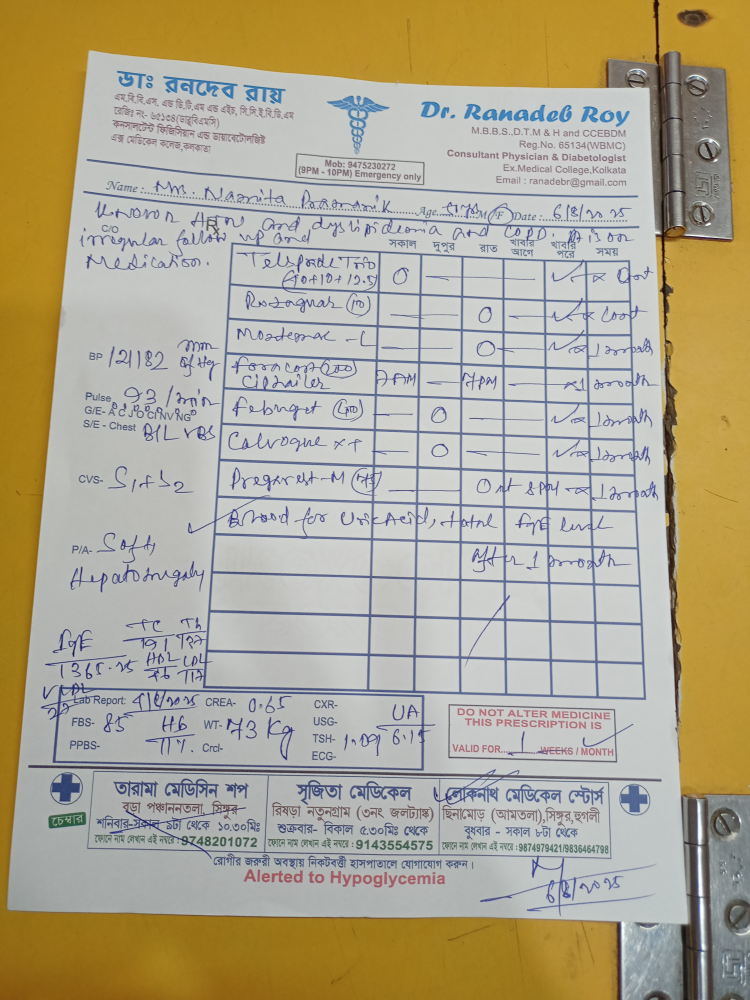 ডাঃ রনদেব রায়
এম.বি.বি.এস. এন্ড ডি.টি.এম এন্ড এইচ, সি.সি.ই.বি.ডি.এম
রেজিঃ নং- ৬৫১৩৪(ডাব্লুবিএমসি)
কনসালটেন্ট ফিজিসিয়ান এন্ড ডায়াবেটোলজিষ্ট
এক্স মেডিকেল কলেজ,কলকাতা
Mob: 9475230272
(9PM - 10PM) Emergency only
Dr. Ranadeb Roy
M.B.B.S..D.T.M & H and CCEBDM
Reg.No. 65134(WBMC)
Consultant Physician & Diabetologist
Ex.Medical College,Kolkata
Email : ranadebr@gmail.com
Name: Mrs. Namita Pramanik Age M/F Date: 6/8/2025
Known HTN and dyslipidemia and COPD. Pt is on
C/O irregular follow up and
Medication.
সকাল দুপুর রাত খাবার আগে খাবার পরে সময়
Trio O — — Cont
(10) — — O Cont
- L — — O 1 month
BP 121/82 mm of Hg
(200) 7AM — 7PM — ×1 month
Pulse 93/min
G/E- A C J O C NV NG
S/E - Chest B/L VBS
(40) — O — 1 month
— O — 1 month
CVS- S1+S2
-M (75) — — O at 8 PM 1 month
Blood for Uric Acid, total IgE level
after 1 month
P/A- Soft,
Hepatomegaly
IgE 1365.25
TC 191
HDL LDL
VLDL 27
Lab Report: CREA- 0.65 CXR- UA 6.15
FBS- 85 Hb WT- 73 Kg USG-
PPBS- Crcl- TSH- 1.09
ECG-
DO NOT ALTER MEDICINE
THIS PRESCRIPTION IS
VALID FOR 1 WEEKS / MONTH
চেম্বার
তারামা মেডিসিন শপ
বুড়া পঞ্চাননতলা, সিঙ্গুর
শনিবার-সকাল ৯টা থেকে ১০.৩০মিঃ
ফোনে নাম লেখান এই নম্বরে : 9748201072
সৃজিতা মেডিকেল
রিষড়া নতুনগ্রাম (৩নং জলট্যাঙ্ক)
শুক্রবার- বিকাল ৫.৩০মিঃ থেকে
ফোনে নাম লেখান এই নম্বরে : 9143554575
লোকনাথ মেডিকেল স্টোর্স
ছিনামোড় (আমতলা),সিঙ্গুর,হুগলী
বুধবার - সকাল ৮টা থেকে
ফোনে নাম লেখান এই নম্বরে : 9874979421/9836464798
রোগীর জরুরী অবস্থায় নিকটবর্ত্তী হাসপাতালে যোগাযোগ করুন।
Alerted to Hypoglycemia
6/8/2025